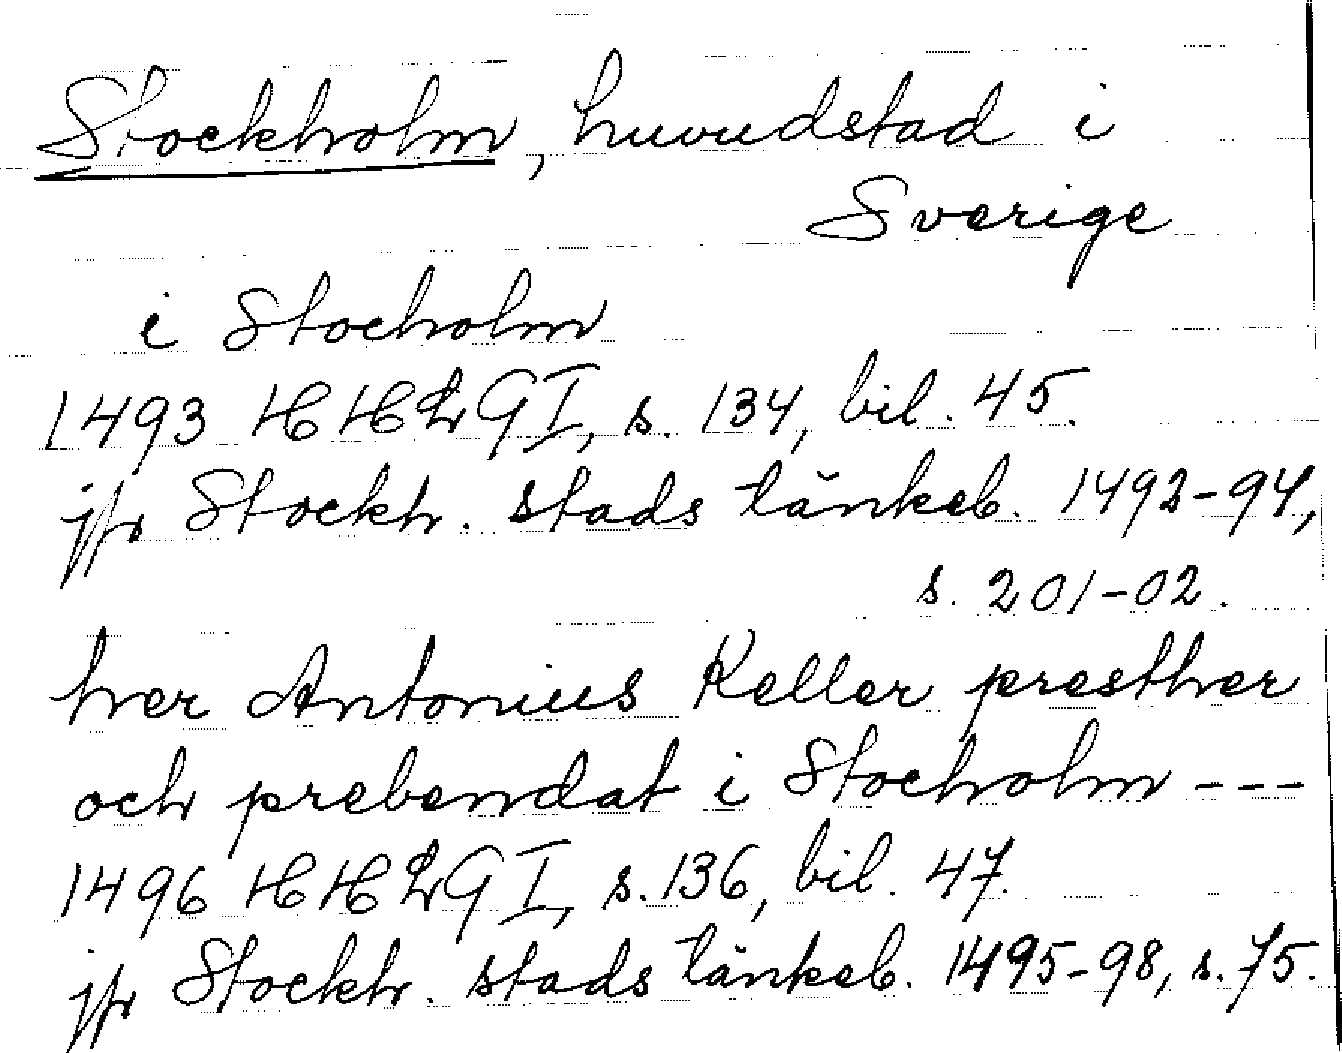 Stockholm, huvudstad i
Sverige
i Stocholm
1493 HHLG I, s. 134, bil. 45.
jfr Stockh. stads tänkeb. 1492-94,
s. 201-02.
her Antonius Keller presther
och prebendat i Stocholm ---
1496 HHLG I, s. 136, bil. 47.
jfr Stockh. stads tänkeb. 1495-98, s. 75.